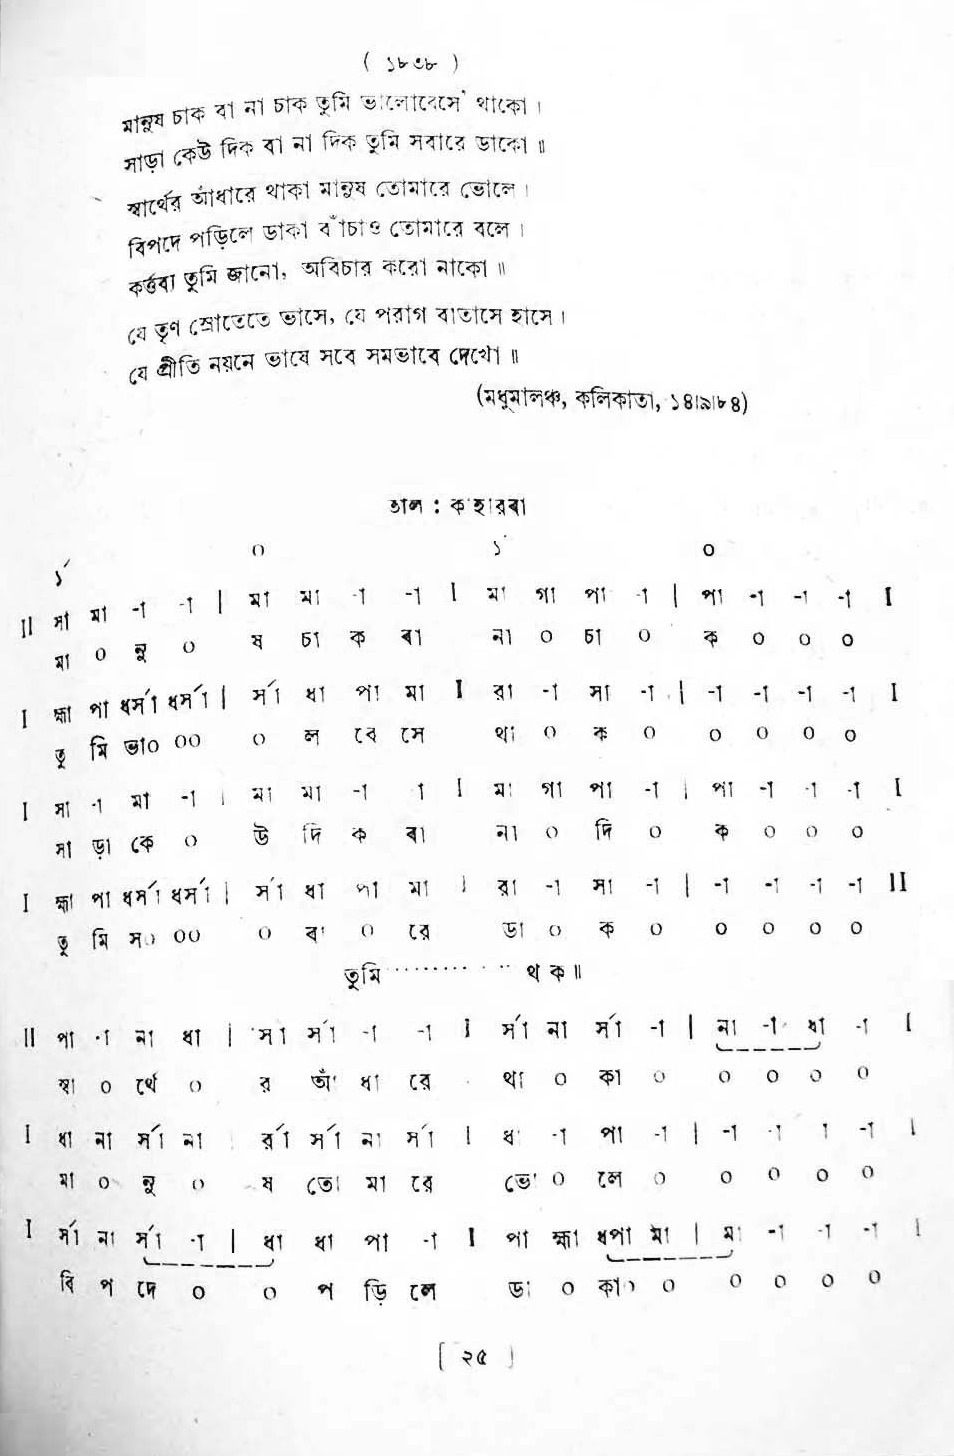 ( ১৮৩৮ )
মানুষ চাক বা না চাক তুমি ভালোবেসে থাকো ।
সাড়া কেউ দিক বা না দিক তুমি সবারে ডাকো ॥
স্বার্থের আঁধারে থাকা মানুষ তোমারে ভোলে ।
বিপদে পড়িলে ডাকা বাঁচাও তোমারে বলে ।
কর্ত্তব্য তুমি জানো, অবিচার করো নাকো ॥
যে তৃণ স্রোতেতে ভাসে, যে পরাগ বাতাসে হাসে ।
যে প্রীতি নয়নে ভাষে সবে সমভাবে দেখো ॥
(মধুমালঞ্চ, কলিকাতা, ১৪।৯।৮৪)
তাল : কাহারবা
১´ ০ ১ ০
II সা মা -া -া | মা মা -া -া I মা গা পা -া | পা -া -া -া I
মা ০ নু ০ ষ চা ক বা না ০ চা ০ ক ০ ০ ০
I হ্মা পা ধর্সা ধর্সা | র্সা ধা পা মা I রা -া সা -া | -া -া -া -া I
তু মি ভা০ ০০ ০ ল বে সে থা ০ ক ০ ০ ০ ০ ০
I সা -া মা -া | মা মা -া া I মা গা পা -া | পা -া -া -া I
সা ড়া কে ০ উ দি ক বা না ০ দি ০ ক ০ ০ ০
I হ্মা পা ধর্সা ধর্সা | র্সা ধা পা মা I রা -া সা -া | -া -া -া -া II
তু মি স০ ০০ ০ বা ০ রে ডা ০ ক ০ ০ ০ ০ ০
তুমি ·········· থক॥
II পা -া না ধা | র্সা র্সা -া -া I র্সা না র্সা -া | না -া ধা -া I
স্বা ০ র্থে ০ র আঁ ধা রে থা ০ কা ০ ০ ০ ০ ০
I ধা না র্সা না | র্রা র্সা না র্সা I ধা -া পা -া | -া -া া -া I
মা ০ নু ০ ষ তো মা রে ভো ০ লে ০ ০ ০ ০ ০
I র্সা না র্সা -া | ধা ধা পা -া I পা হ্মা ধপা মা | মা -া -া -া I
বি প দে ০ ০ প ড়ি লে ডা ০ কা০ ০ ০ ০ ০ ০
[ ২৫ ]